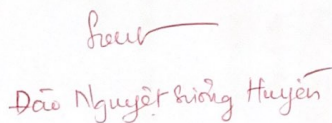 Đào Nguyệt Sương Huyền